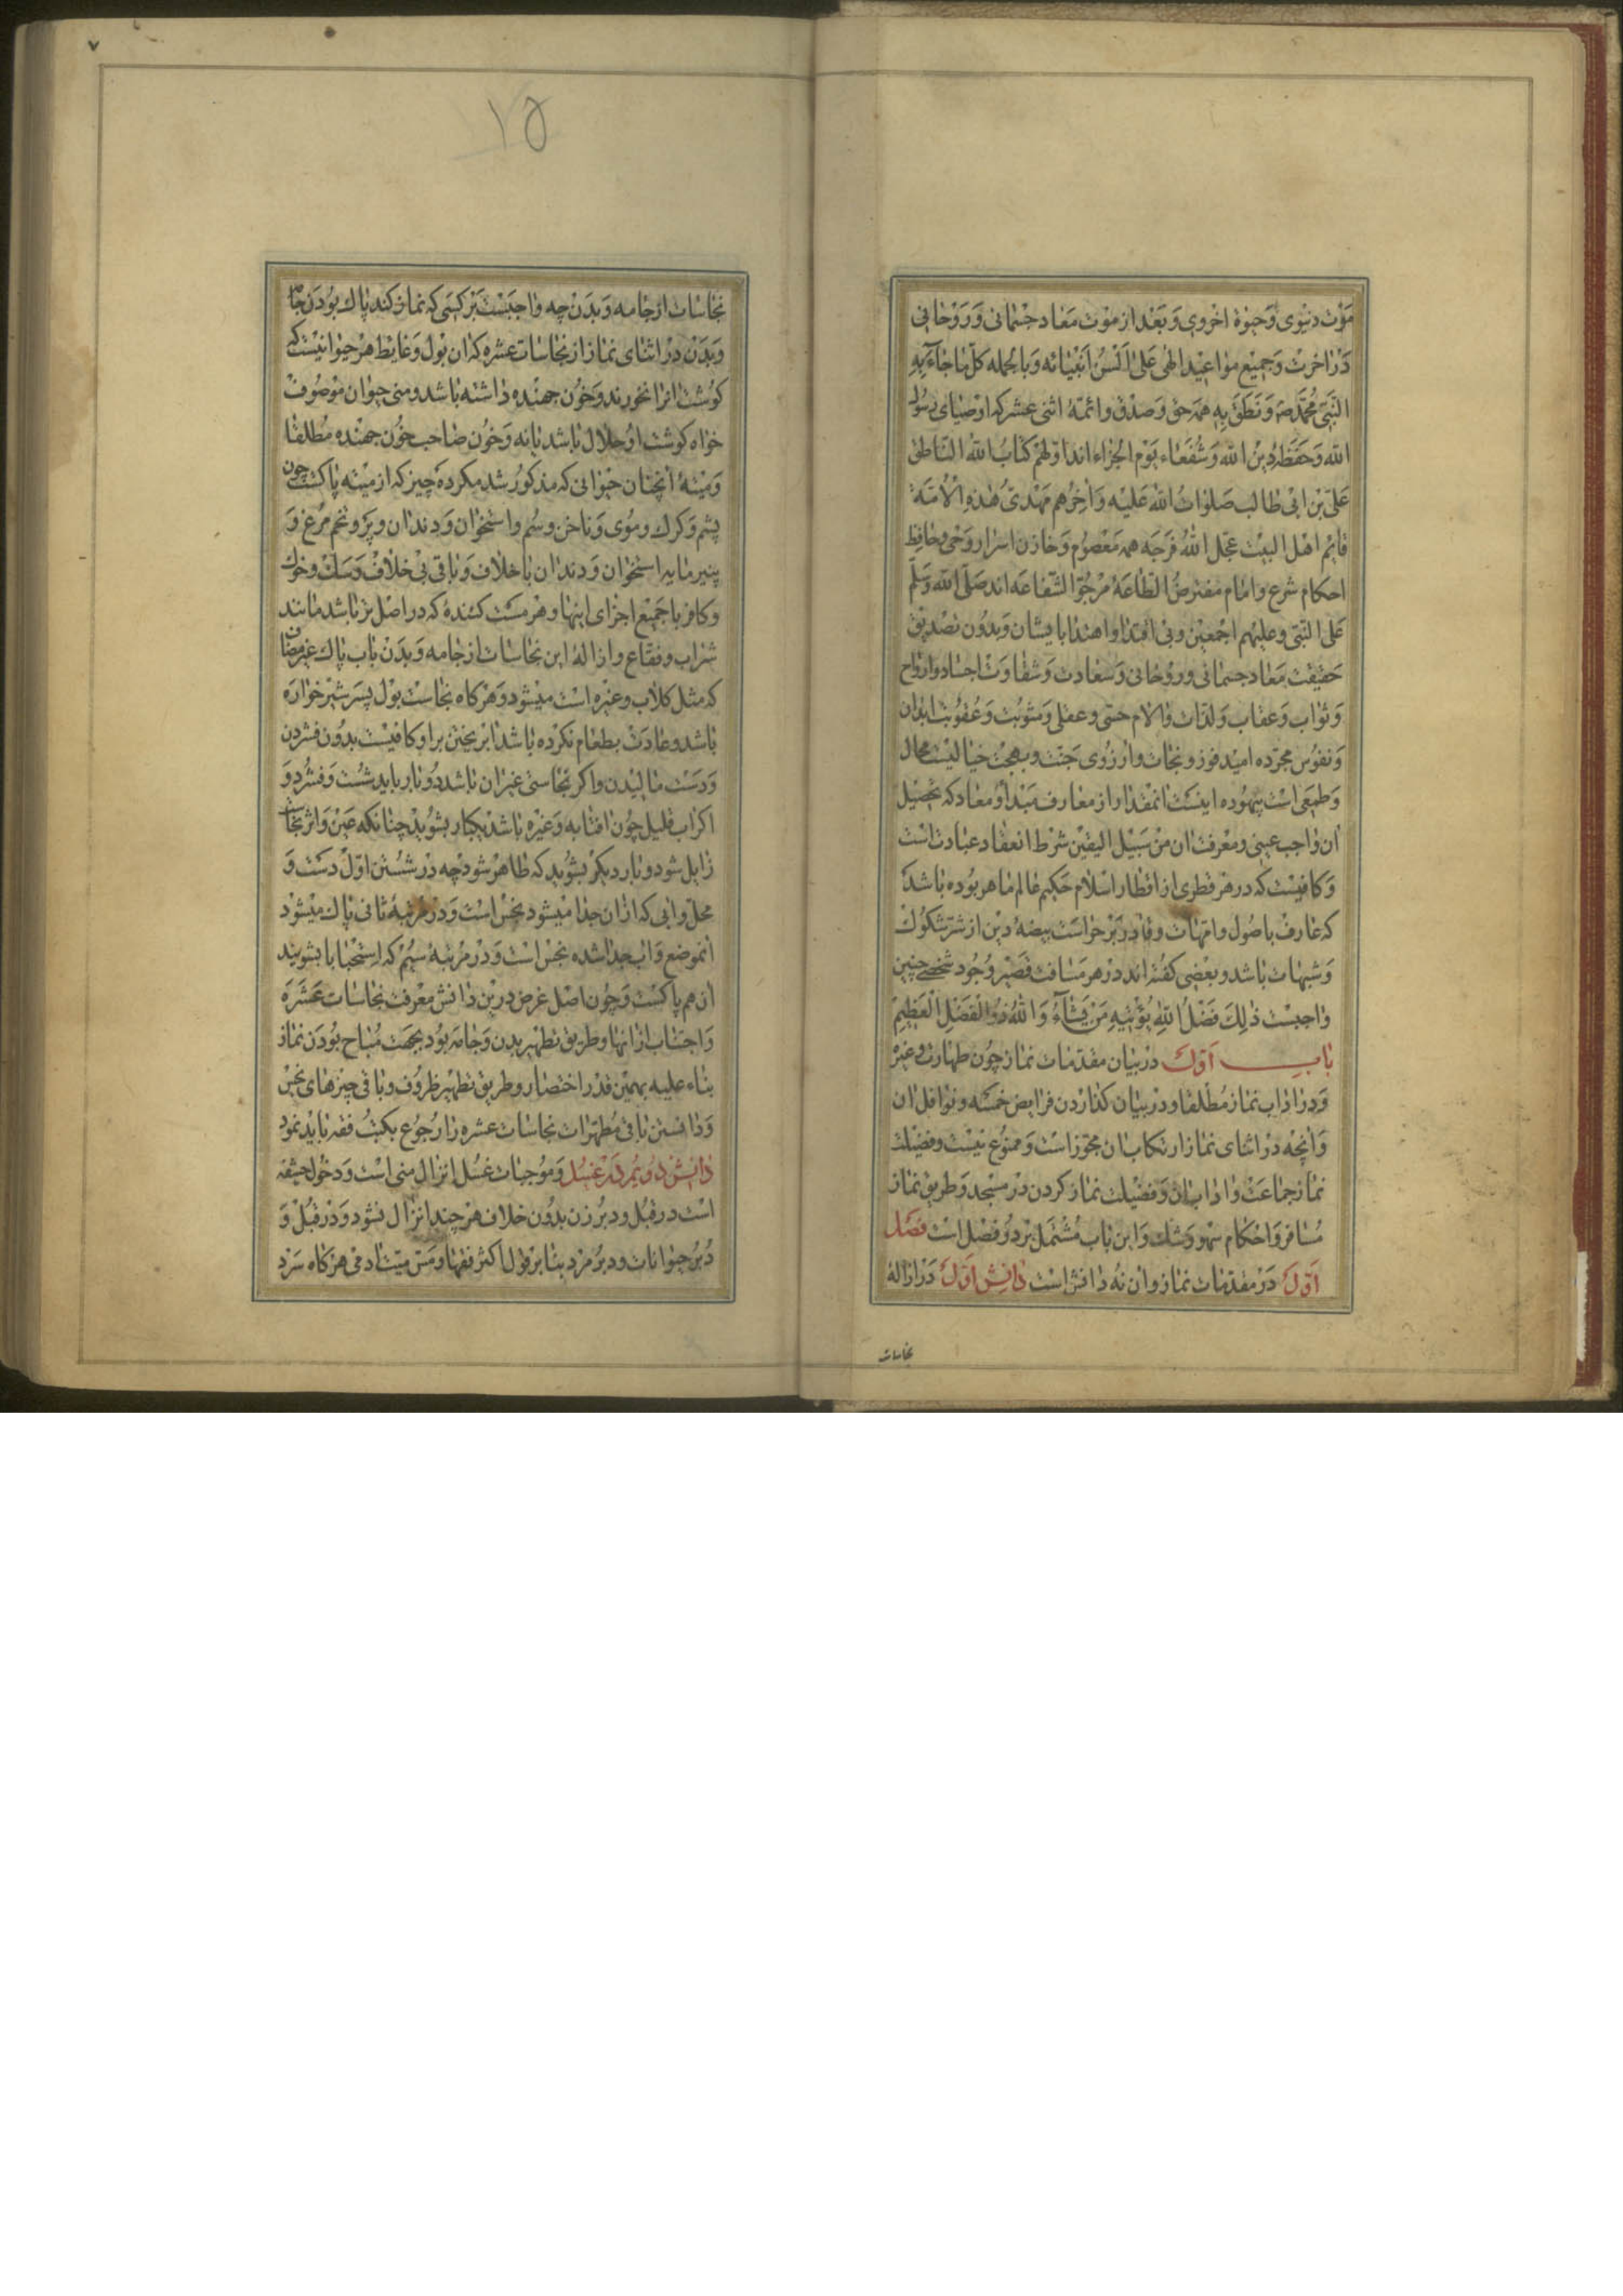 موت دنیوی وحیوة اخروی وبعد از موت معاد جسمانی وروحانی
در اخرت وجمیع مواعید الهی علی السن انبیائه وبالجمله کل ما جاء به
النبی محمد ص ونطق به همه حق وصدق وائمهٔ اثنی عشر که اوصیای رسول
الله وحفظهٔ دین الله وشفعاء یوم الجزاء اند اولهم کتاب الله الناطق
علی بن ابی طالب صلوات الله علیه واخرهم مهدی هذه الامة
قایم اهل البیت عجل الله فرجه همه معصوم وخازن اسرار وحی وحافظ
احکام شرع وامام مفترض الطاعه مرجو الشفاعه اند صلی الله وسلم
علی النبی وعلیهم اجمعین وبی اقتدا واهتدا بایشان وبدون تصدیق
حقیقت معاد جسمانی وروحانی وسعادت وشقاوت اجساد وارواح
وثواب وعقاب ولذات والام حسی وعقلی ومثوبت وعقوبت ابدان
ونفوس مجرده امید فوز ونجات وارزوی جنت وبهجت خیالیست محال
وطمعی است بیهوده اینست انمقدار از معارف مبدأ ومعاد که تحصیل
ان واجب عینی ومعرفت ان من سبیل الیقین شرط انعقاد عبادت است
وکافیست که در هر قطری از اقطار اسلام حکیم عالم ماهر بوده باشد
که عارف باصول وامهات وقادر بر حراست بیضهٔ دین از شر شکوک
وشبهات باشد وبعضی گفته اند در هر مسافت قصیر وجود شخصی چنین
واجبست ذلك فضل الله یؤتیه من یشاء والله ذو الفضل العظیم
باب اول در بیان مقدمات نماز چون طهارت وغیره
ودر اداب نماز مطلقا ودر بیان گذاردن فرایض خمسه ونوافل ان
وانچه در اثنای نماز ارتکاب ان مجوز است وممنوع نیست وفضیلت
نماز جماعت واداب ان وفضیلت نماز کردن در مسجد وطریق نماز
مسافر واحکام سهو وشک واین باب مشتمل بر دو فصل است فصل
اول در مقدمات نماز وان نه دانش است دانش اول در ازالهٔ
نجاسات
٧
١٢۵
نجاسات از جامه وبدن چه واجبست بر کسی که نماز کند پاک بودن جامه
وبدن در اثنای نماز از نجاسات عشره که ان بول وغایط هر حیوانیست که
گوشت انرا نخورند وخون جهنده داشته باشد ومنی حیوان موصوف
خواه گوشت او حلال باشد یا نه وخون صاحب خون جهنده مطلقا
ومیتهٔ انچنان حیوانی که مذکور شد مگر ده چیز که از میته پاکست چون
پشم وکرک وموی وناخن وسم واستخوان ودندان وپر وتخم مرغ و
پنیر مایه استخوان ودندان باخلاف وباقی بی خلاف وسگ وخوک
وکافر با جمیع اجزای اینها وهر مست کنندهٔ که در اصل تر باشد مانند
شراب وفقاع وازالهٔ این نجاسات از جامه وبدن باب پاک غیر مضاف
که مثل گلاب وغیره است میشود وهرگاه نجاست بول پسر شیرخواره
باشد وعادت بطعام نکرده باشد اب ریختن بر او کافیست بدون فشردن
ودست مالیدن واگر نجاستی غیر ان باشد دو بار باید شست وفشرد و
اگر اب قلیل چون افتابه وغیره باشد یکبار بشوید چنانکه عین واثر نجاست
زایل شود وبار دیگر بشوید که طاهر شود چه در شستن اول دست و
محل وابی که ازان جدا میشود نجس است ودر مرتبهٔ ثانی پاک میشود
انموضع واب جدا شده نجس است ودر مرتبهٔ سیم که استحبابا بشویند
ان هم پاکست وچون اصل غرض درین دانش معرفت نجاسات عشره
واجتناب از انها وطریق تطهیر بدن وجامه بود بجهت مباح بودن نماز
بناء علیه بهمین قدر اختصار وطریق تطهیر ظروف وباقی چیزهای نجس
ودانستن باقی مطهرات نجاسات عشره را رجوع بکتب فقه باید نمود
دانش دویم در غسل وموجبات غسل انزال منی است ودخول حشفه
است در قبل ودبر زن بدون خلاف هر چند انزال نشود ودر قبل و
دبر حیوانات ودبر مرد بنابر قول اکثر فقها ومس میت ادمی هرگاه سرد